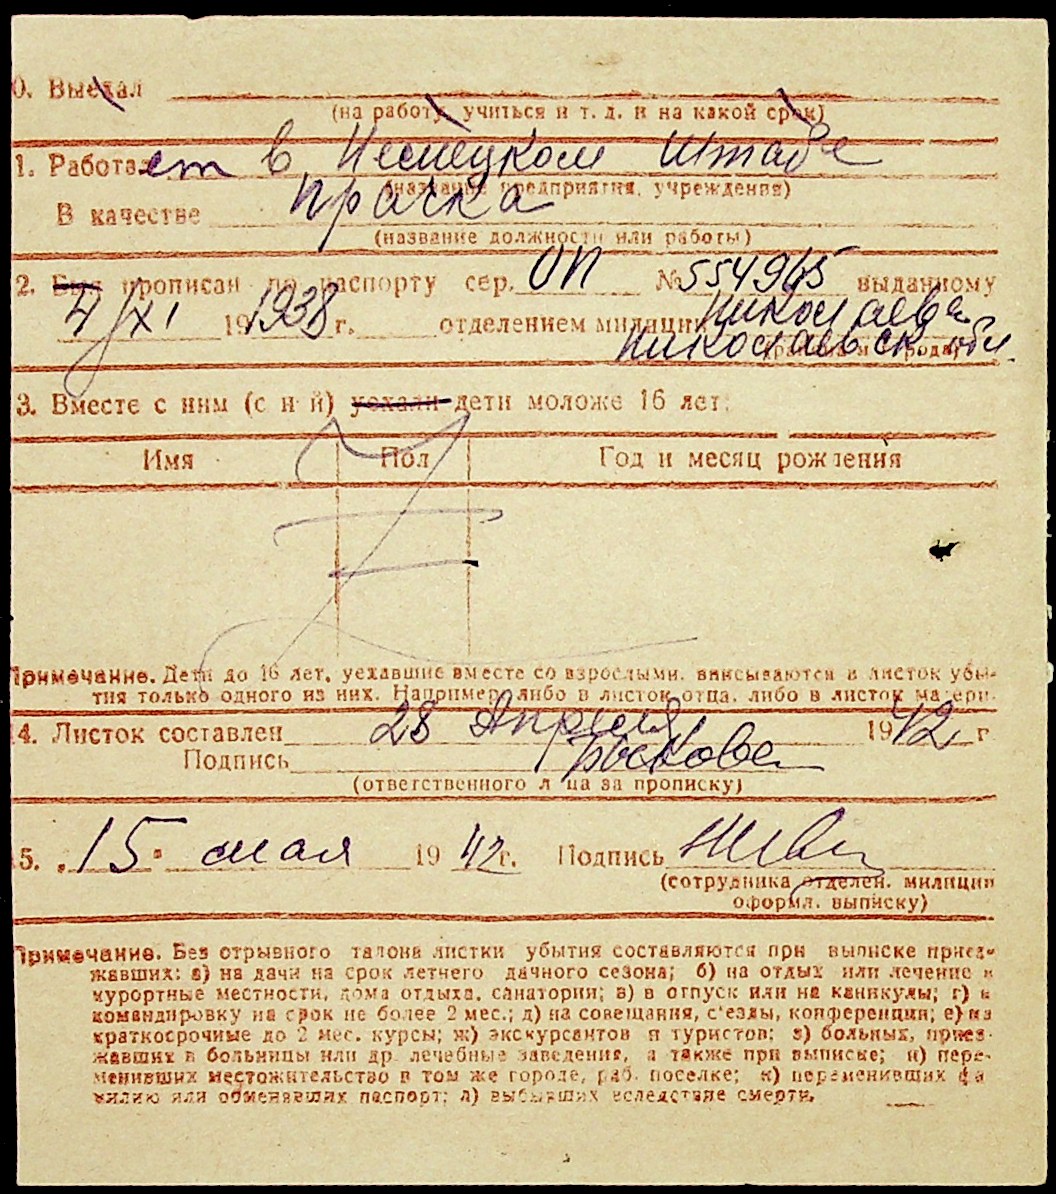 0. Выехал
(на работу, учиться и т. д. и на какой срок)
1. Работает в Немецком штабе
(название предприятия, учреждения)
В качестве прачка
(название должности или работы)
2. Был прописан по паспорту сер. ОП № 554965 выданному
4/XI 191938 г. отделением милиции Николаева
Николаевск. обл.
3. Вместе с ним (с н й) уехали дети моложе 16 лет:
Имя Пол Год и месяц рождения
Примечание. Дети до 16 лет, уехавшие вместе со взрослыми, вписываются в листок убы-
тия только одного из них. Например, либо в листок отца, либо в листок матери.
4. Листок составлен 28 Апреля 1942 г
Подпись
(ответственного лица за прописку)
5. „15" мая 1942 г. Подпись
(сотрудника отделен. милиции
оформл. выписку)
Примечание. Без отрывного талона листки убытия составляются при выписке приез-
жавших: а) на дачи на срок летнего дачного сезона; б) на отдых или лечение в
курортные местности, дома отдыха, санатории; в) в отпуск или на каникулы; г) в
командировку на срок не более 2 мес.; д) на совещания, с'езды, конференции; е) на
краткосрочные до 2 мес. курсы; ж) экскурсантов и туристов; з) больных, приез-
жавших в больницы или др. лечебные заведения, а также при выписке; и) пере-
менивших местожительство в том же городе, раб. поселке; к) переменивших фа
милию или обменявших паспорт; л) выбывших вследствие смерти.